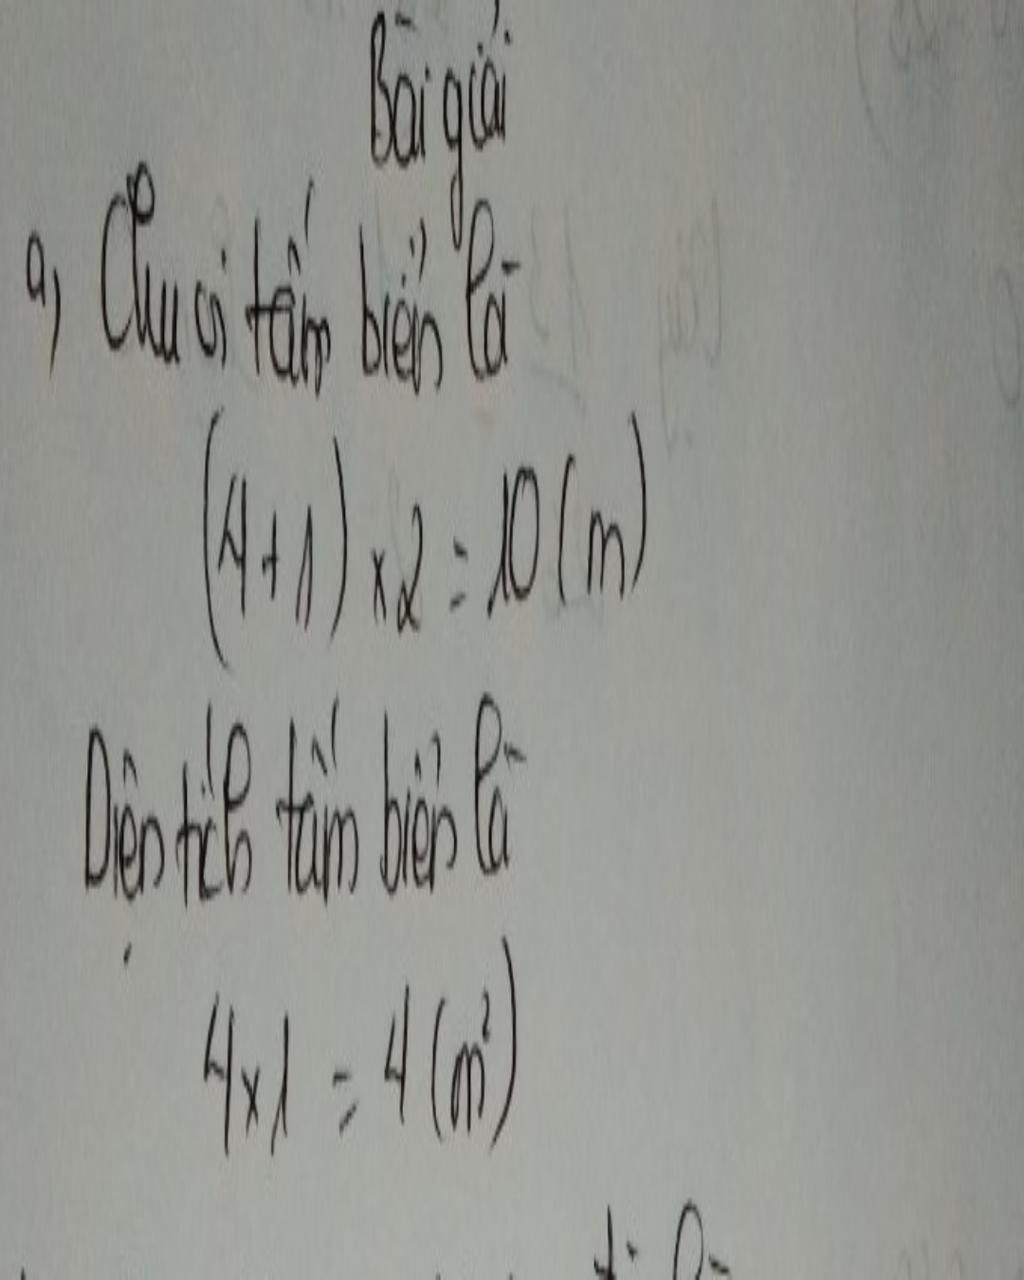 Bài giải
a, Chu vi tấm biển là
(4+1) x 2 = 10 (m)
Diện tích tấm biển là
4 x 1 = 4 (m²)